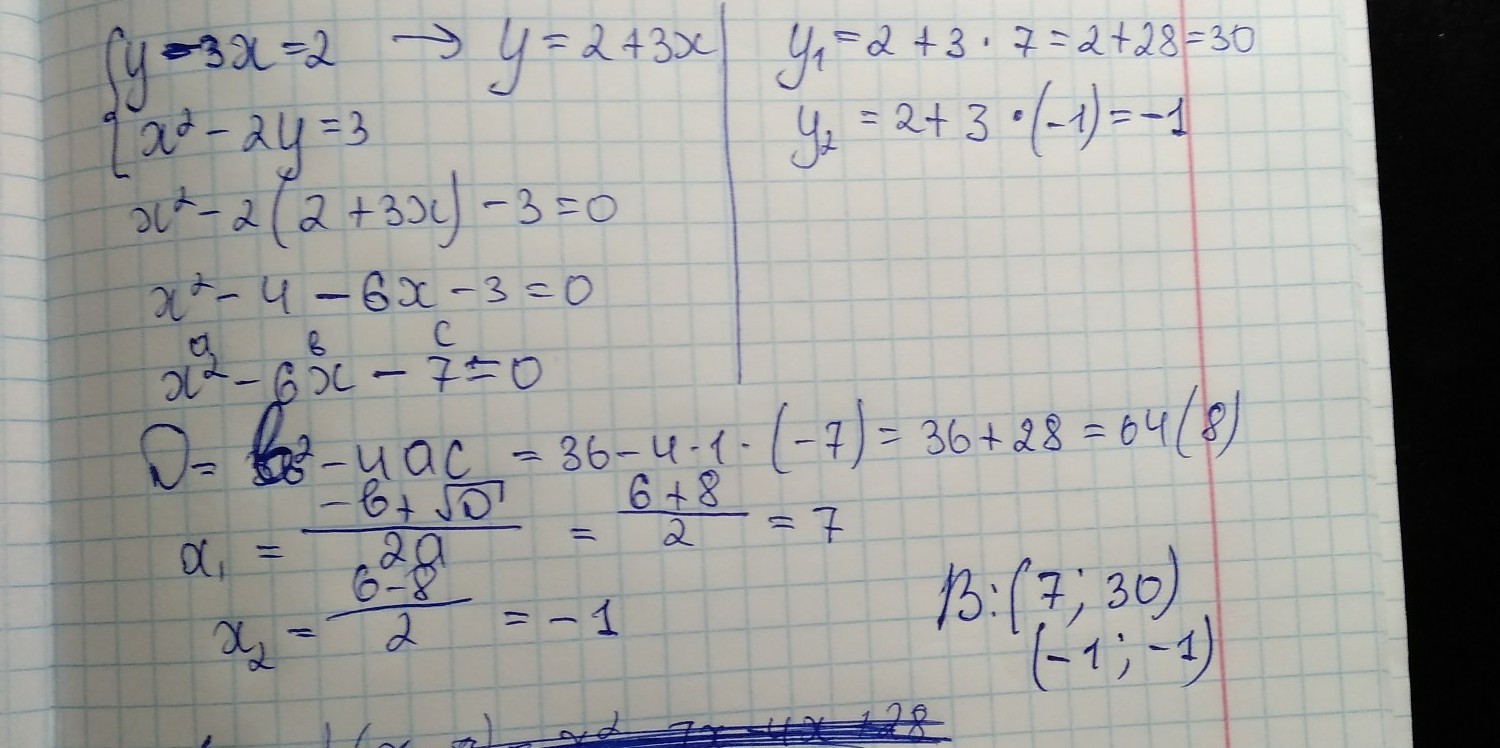 {y - 3x = 2 → y = 2 + 3x
x² - 2y = 3
x² - 2(2 + 3x) - 3 = 0
x² - 4 - 6x - 3 = 0
a в c
x² - 6x - 7 = 0
y₁ = 2 + 3 · 7 = 2 + 28 = 30
y₂ = 2 + 3 · (-1) = -1
D = b² - 4ac = 36 - 4 · 1 · (-7) = 36 + 28 = 64 (8)
x₁ = (-в + √D)/(2a) = (6 + 8)/2 = 7
x₂ = (6 - 8)/2 = -1
В: (7; 30)
(-1; -1)